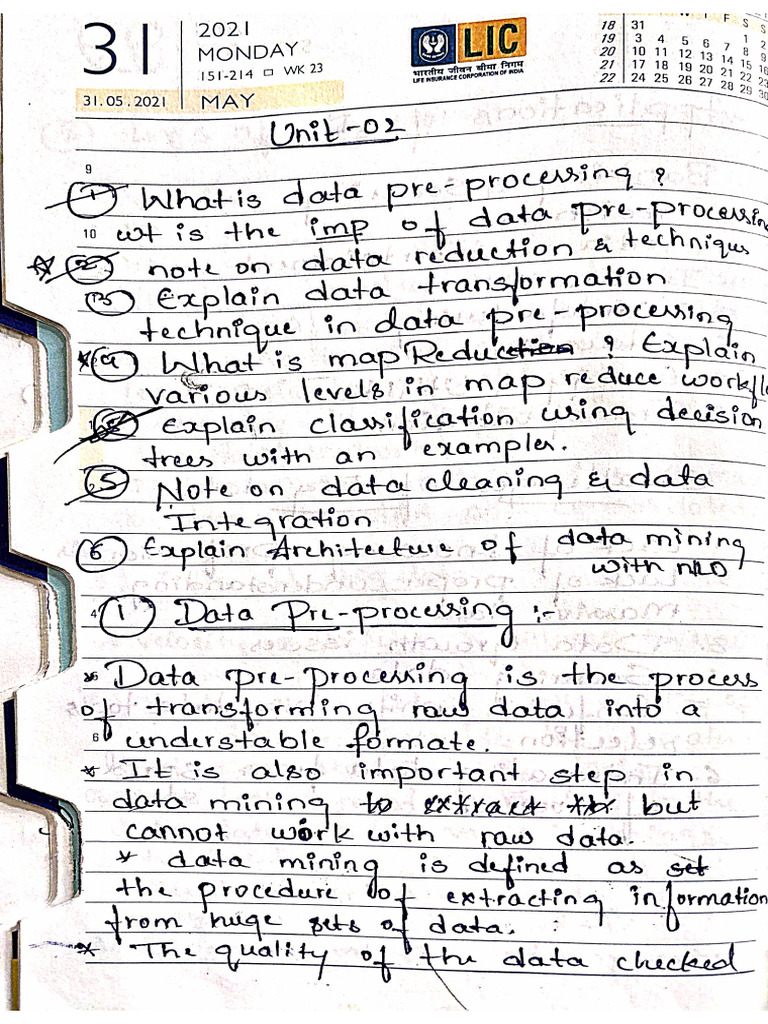 31
2021
MONDAY
151-214 □ WK 23
31.05.2021 MAY
LIC
भारतीय जीवन बीमा निगम
LIFE INSURANCE CORPORATION OF INDIA
W T F S S
18 31 1 2
19 3 4 5 6 7 8 9
20 10 11 12 13 14 15 16
21 17 18 19 20 21 22 23
22 24 25 26 27 28 29 30
Unit-02
9
① What is data pre-processing ?
10 wt is the imp of data pre-processing
② note on data reduction & techniqus
③ Explain data transformation
technique in data pre-processing
④ What is map Reduction ? Explain
various levels in map reduce workfl
Explain classification using decision
trees with an examples.
⑤ Note on data cleaning & data
Integration
⑥ Explain Architecture of data mining
with
4 ① Data Pre-processing :-
* Data pre-processing is the process
of transforming raw data into a
6 understable formate.
* It is also important step in
data mining to extract but
cannot work with raw data.
* data mining is defined as set
the procedure of extracting information
from huge sets of data.
* The quality of the data checked